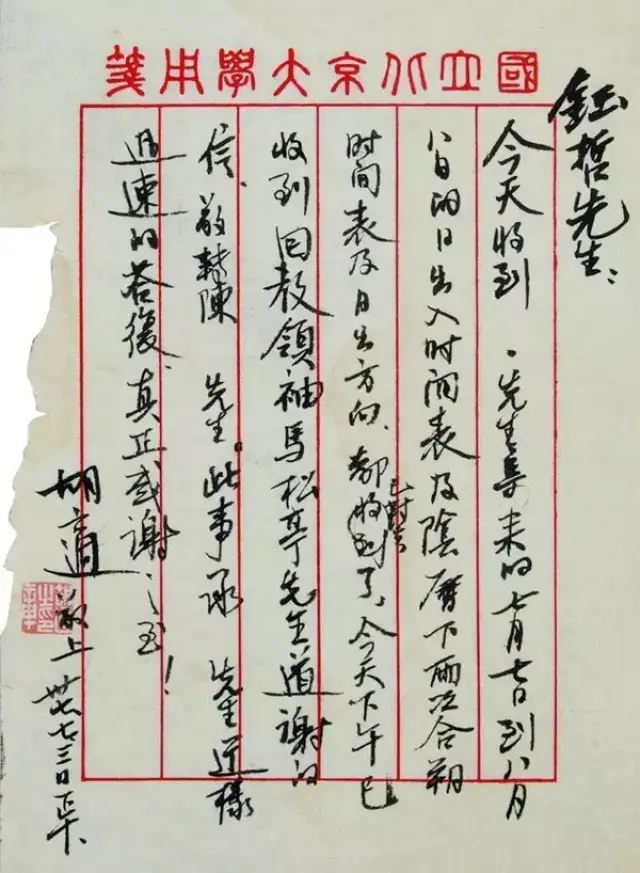 國立北京大學用箋
鈺哲先生：
今天收到 先生寄来的七月七日到八月
八日的日出入时间表及陰曆下兩次合朔
时间表及日出方向，都收到了，今天下午已
收到回教領袖馬松亭先生道謝的
信，敬转陳 先生。此事承 先生这樣
迅速的答復，真正感謝之至！
胡適敬上 卅七，七，三日下午、